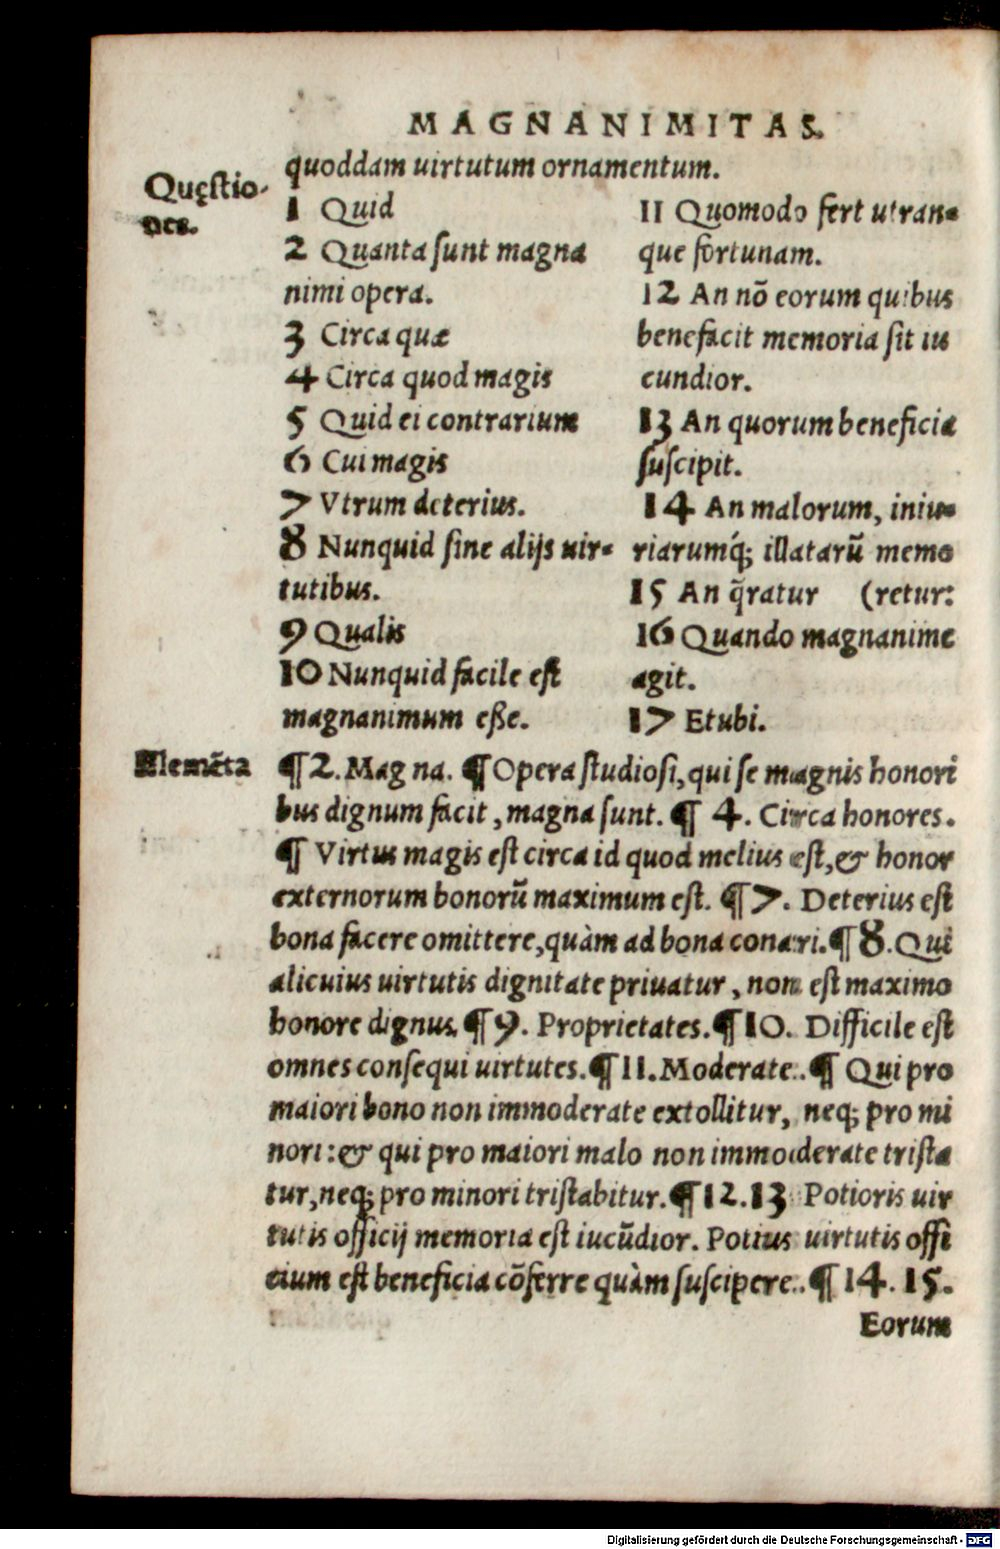 MAGNANIMITAS.
quoddam uirtutum ornamentum.
Quęstio-
nes.
1 Quid
2 Quanta sunt magna
nimi opera.
3 Circa quæ
4 Circa quod magis
5 Quid ei contrarium
6 Cui magis
7 Vtrum deterius.
8 Nunquid sine alijs uir-
tutibus.
9 Qualis
10 Nunquid facile est
magnanimum esse.
11 Quomodo fert utran-
que fortunam.
12 An nō eorum quibus
benefacit memoria sit iu
cundior.
13 An quorum beneficia
suscipit.
14 An malorum, iniu-
riarumq́; illatarū memo
15 An q̄ratur (retur:
16 Quando magnanime
agit.
17 Et ubi.
Elemēta
¶ 2. Magna. ¶ Opera studiosi, qui se magnis honori
bus dignum facit, magna sunt. ¶ 4. Circa honores.
¶ Virtus magis est circa id quod melius est, & honor
externorum bonorū maximum est. ¶ 7. Deterius est
bona facere omittere, quàm ad bona conari. ¶ 8. Qui
alicuius uirtutis dignitate priuatur, non est maximo
honore dignus. ¶ 9. Proprietates. ¶ 10. Difficile est
omnes consequi uirtutes. ¶ 11. Moderate. ¶ Qui pro
maiori bono non immoderate extollitur, neq; pro mi
nori: & qui pro maiori malo non immoderate trista
tur, neq; pro minori tristabitur. ¶ 12. 13 Potioris uir
tutis officij memoria est iucūdior. Potius uirtutis offi
cium est beneficia cōferre quàm suscipere. ¶ 14. 15.
Eorum
Digitalisierung gefördert durch die Deutsche Forschungsgemeinschaft - DFG